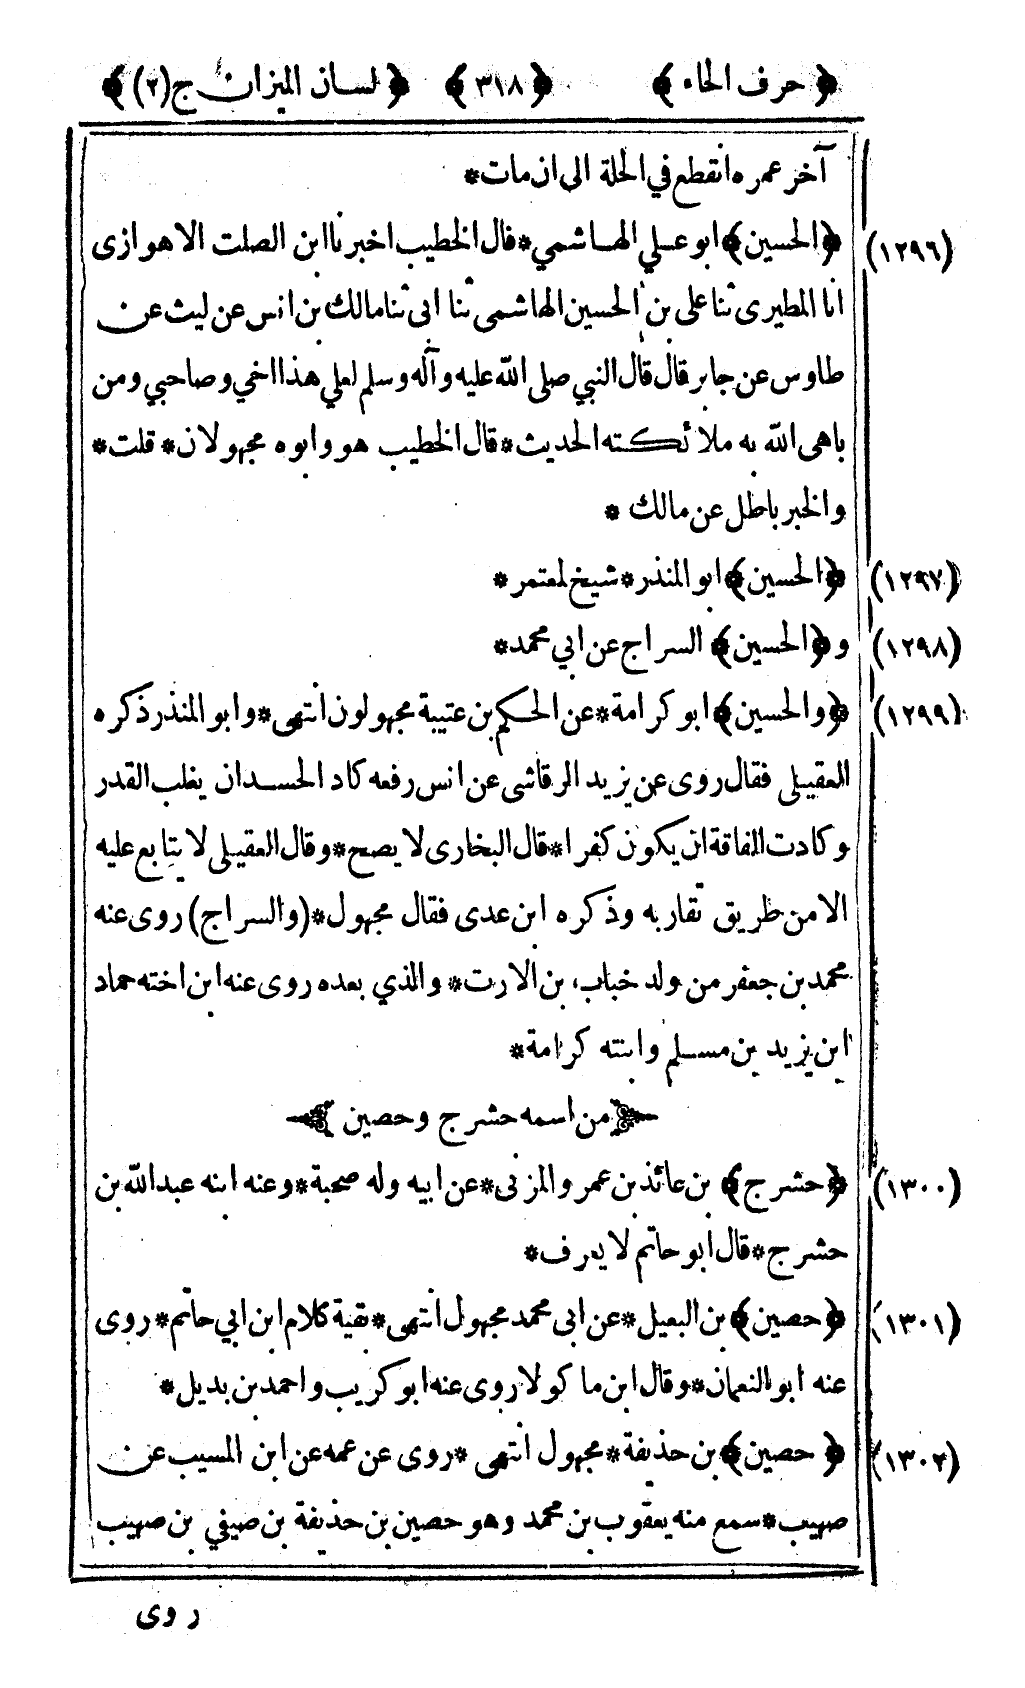 ﴿ حرف الحاء ﴾ ﴿ ٣١٨ ﴾ ﴿ لسان الميزان ج (٢) ﴾
آخر عمره انقطع في الحلة الى ان مات*
(١٢٩٦) ﴿الحسين﴾ ابو علي الهاشمي*قال الخطيب اخبرنا ابن الصلت الاهوازى
انا المطيرى ثنا على بن الحسين الهاشمى ثنا ابى ثنا مالك بن انس عن ليث عن
طاوس عن جابر قال قال النبي صلى الله عليه وآله وسلم لعلي هذا اخي وصاحبي ومن
باهى الله به ملائكته الحديث*قال الخطيب هو وابوه مجهولان* قلت*
والخبر باطل عن مالك *
(١٢٩٧) ﴿الحسين﴾ ابو المنذر*شيخ لمعتمر*
(١٢٩٨) و﴿الحسين﴾ السراج عن ابي محمد*
(١٢٩٩) ﴿والحسين﴾ ابو كرامة*عن الحكم بن عتيبة مجهولون انتهى*وابو المنذر ذكره
العقيلى فقال روى عن يزيد الرقاشى عن انس رفعه كاد الحسدان يغلب القدر
وكادت الفاقة ان يكون كفرا*قال البخارى لا يصح*وقال العقيلى لا يتابع عليه
الا من طريق تقاربه وذكره ابن عدى فقال مجهول*(والسراج) روى عنه
محمد بن جعفر من ولد خباب بن الارت* والذي بعده روى عنه ابن اخته حماد
ابن يزيد بن مسلم وابنته كرامة*
من اسمه حشرج وحصين
(١٣٠٠) ﴿حشرج﴾ بن عائذ بن عمرو المزنى*عن ابيه وله صحبة*وعنه ابنه عبدالله بن
حشرج*قال ابو حاتم لا يعرف*
(١٣٠١) ﴿حصين﴾ بن البعيل*عن ابى محمد مجهول انتهى*بقية كلام ابن ابي حاتم*روى
عنه ابو النعمان*وقال ابن ماكولا روى عنه ابو كريب واحمد بن بديل*
(١٣٠٢) ﴿ حصين﴾ بن حذيفة*مجهول انتهى *روى عن عمه عن ابن المسيب عن
صهيب*سمع منه يعقوب بن محمد وهو حصين بن حذيفة بن صيفي بن صهيب
روى